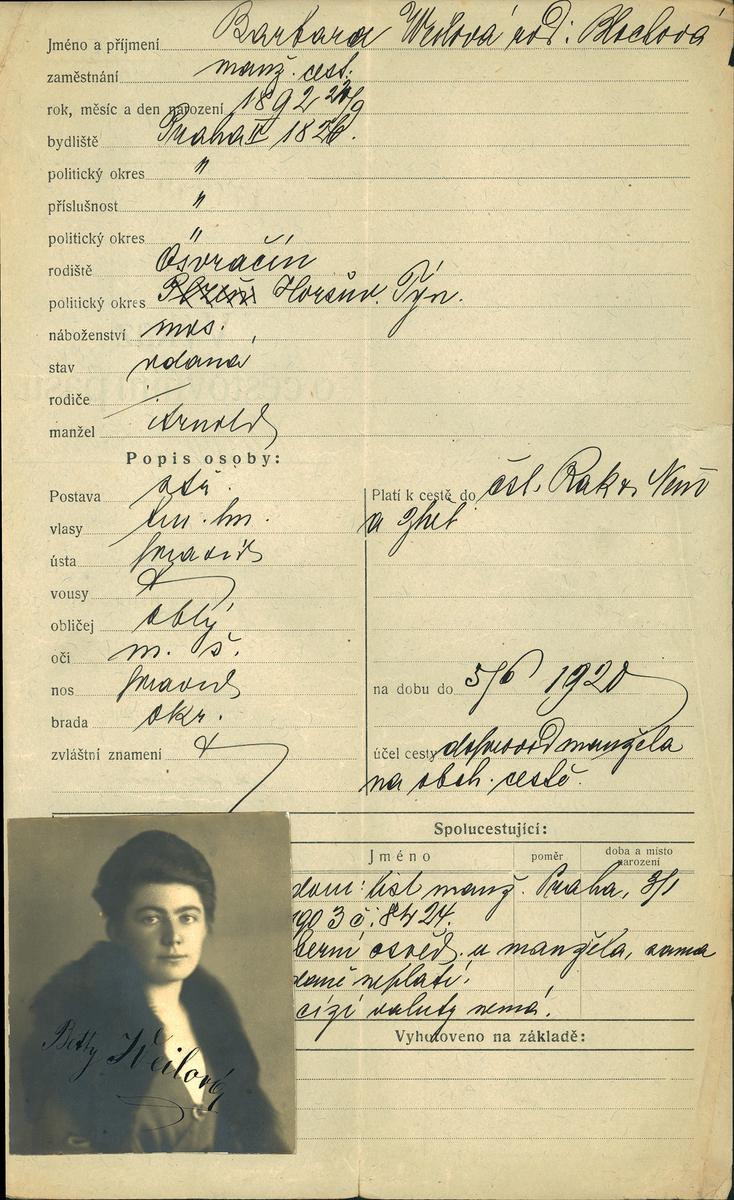 Jméno a příjmení Barbara Weilová roz: Blochová
zaměstnání manž. cest.
rok, měsíc a den narození 1892
bydliště Praha II 1826.
politický okres "
příslušnost "
politický okres "
rodiště Osvračín
politický okres Plzeň Horšův. Týn.
náboženství mos.
stav vdaná
rodiče
manžel Arnold
Popis osoby:
Postava stř.
vlasy tm. hn.
ústa pravid
vousy
obličej oblý
oči m. š.
nos pravid
brada okr.
zvláštní znamení
Platí k cestě do čsl. Rak. Něm
a zpět
na dobu do 5/6 1920
účel cesty doprovod manžela
na obch. cestě.
Spolucestující:
Jméno poměr doba a místo narození
dom: list manž. Praha, 3/1
č: 8424.
berní osvěd. u manžela, sama
daně neplatí.
cizí valuty nemá.
Vyhotoveno na základě:
Betty Weilová